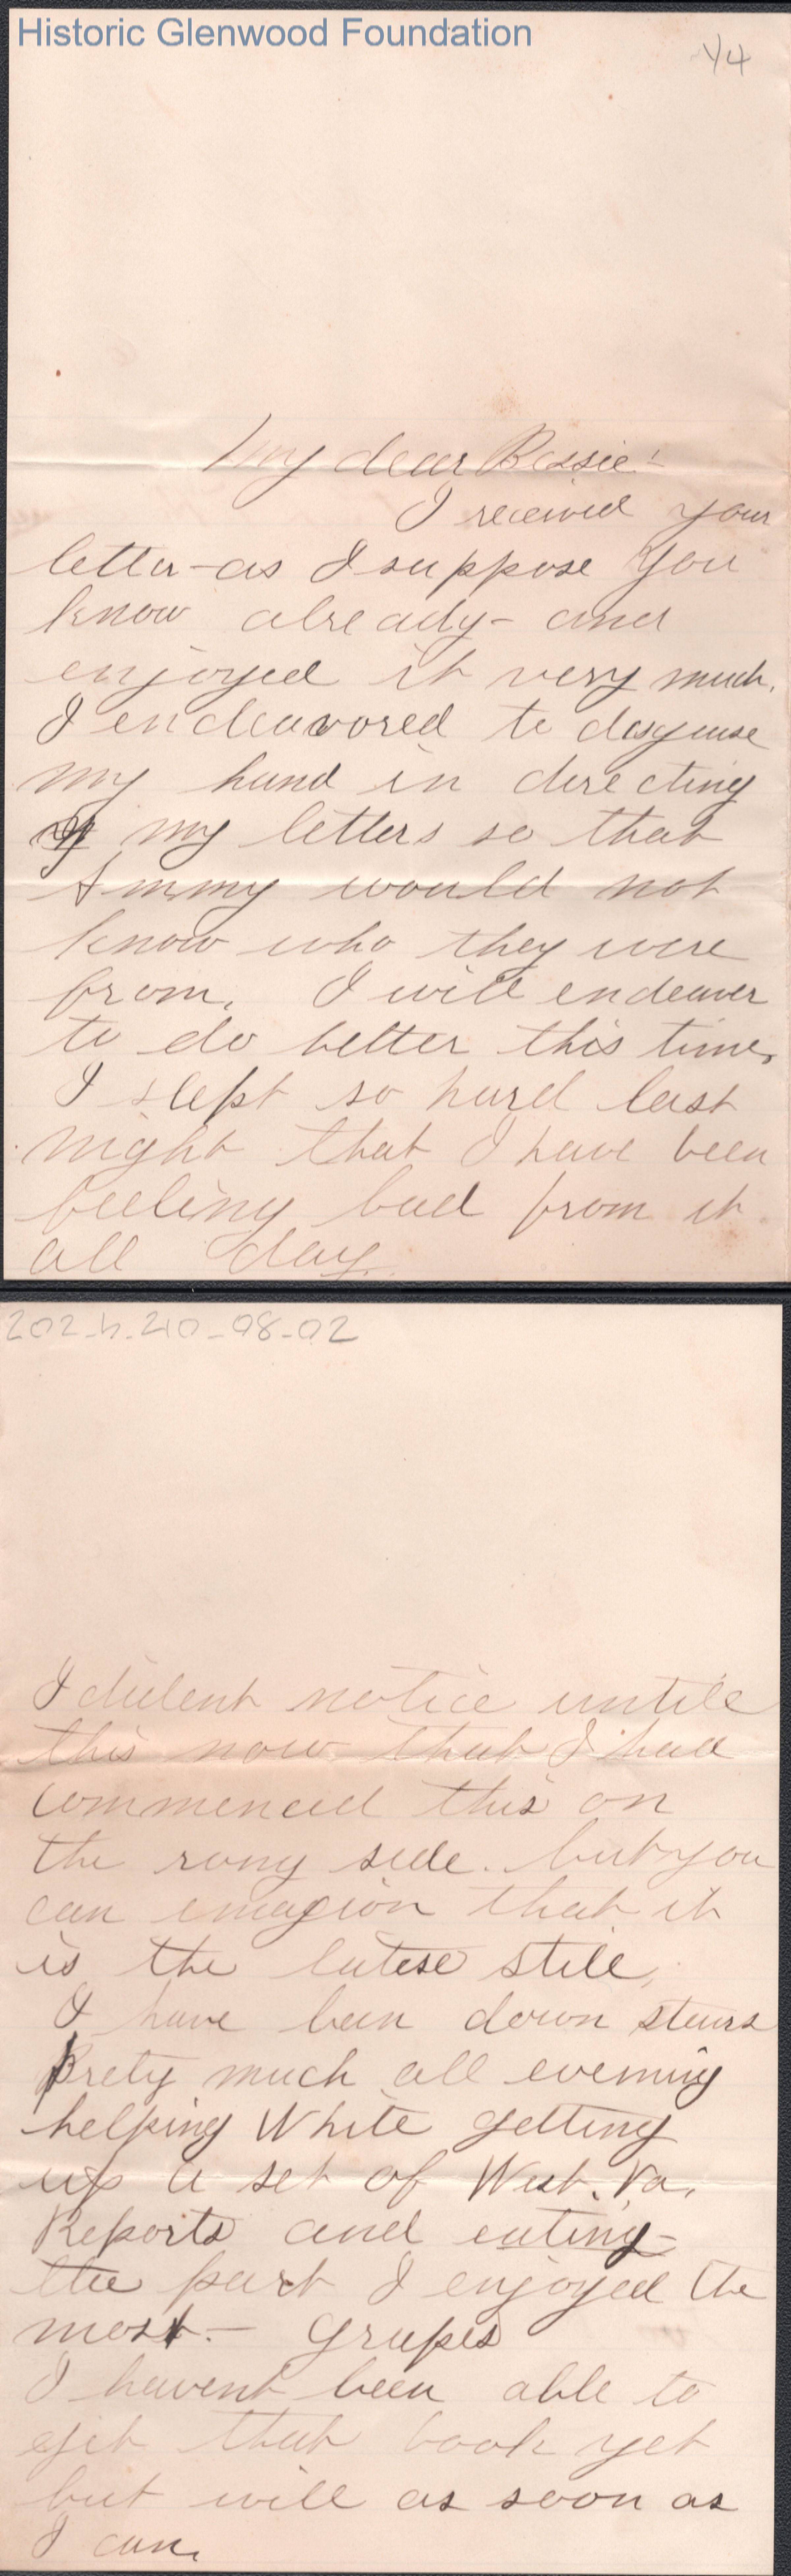 Historic Glenwood Foundation
1/4
My dear Bessie!
I received your
letter-as I suppose you
know already- and
enjoyed it very much.
I endeavored to disguise
my hand in directing
my letters so that
Ammy would not
know who they were
from. I will endeaver
to do better this time,
I slept so hard last
night that I have been
feeling bad from it
all day.
202_h_210_08_02
I dident notice untill
this now that I had
commenced this on
the rong side. but you
can imagion that it
is the latese stile,
I have been down stairs
Prety much all evening
helping White getting
up a set of West. Va.
Reports and eating-
the part I enjoyed the
most.- Grapes
I havent been able to
git that book yet
but will as soon as
I can.